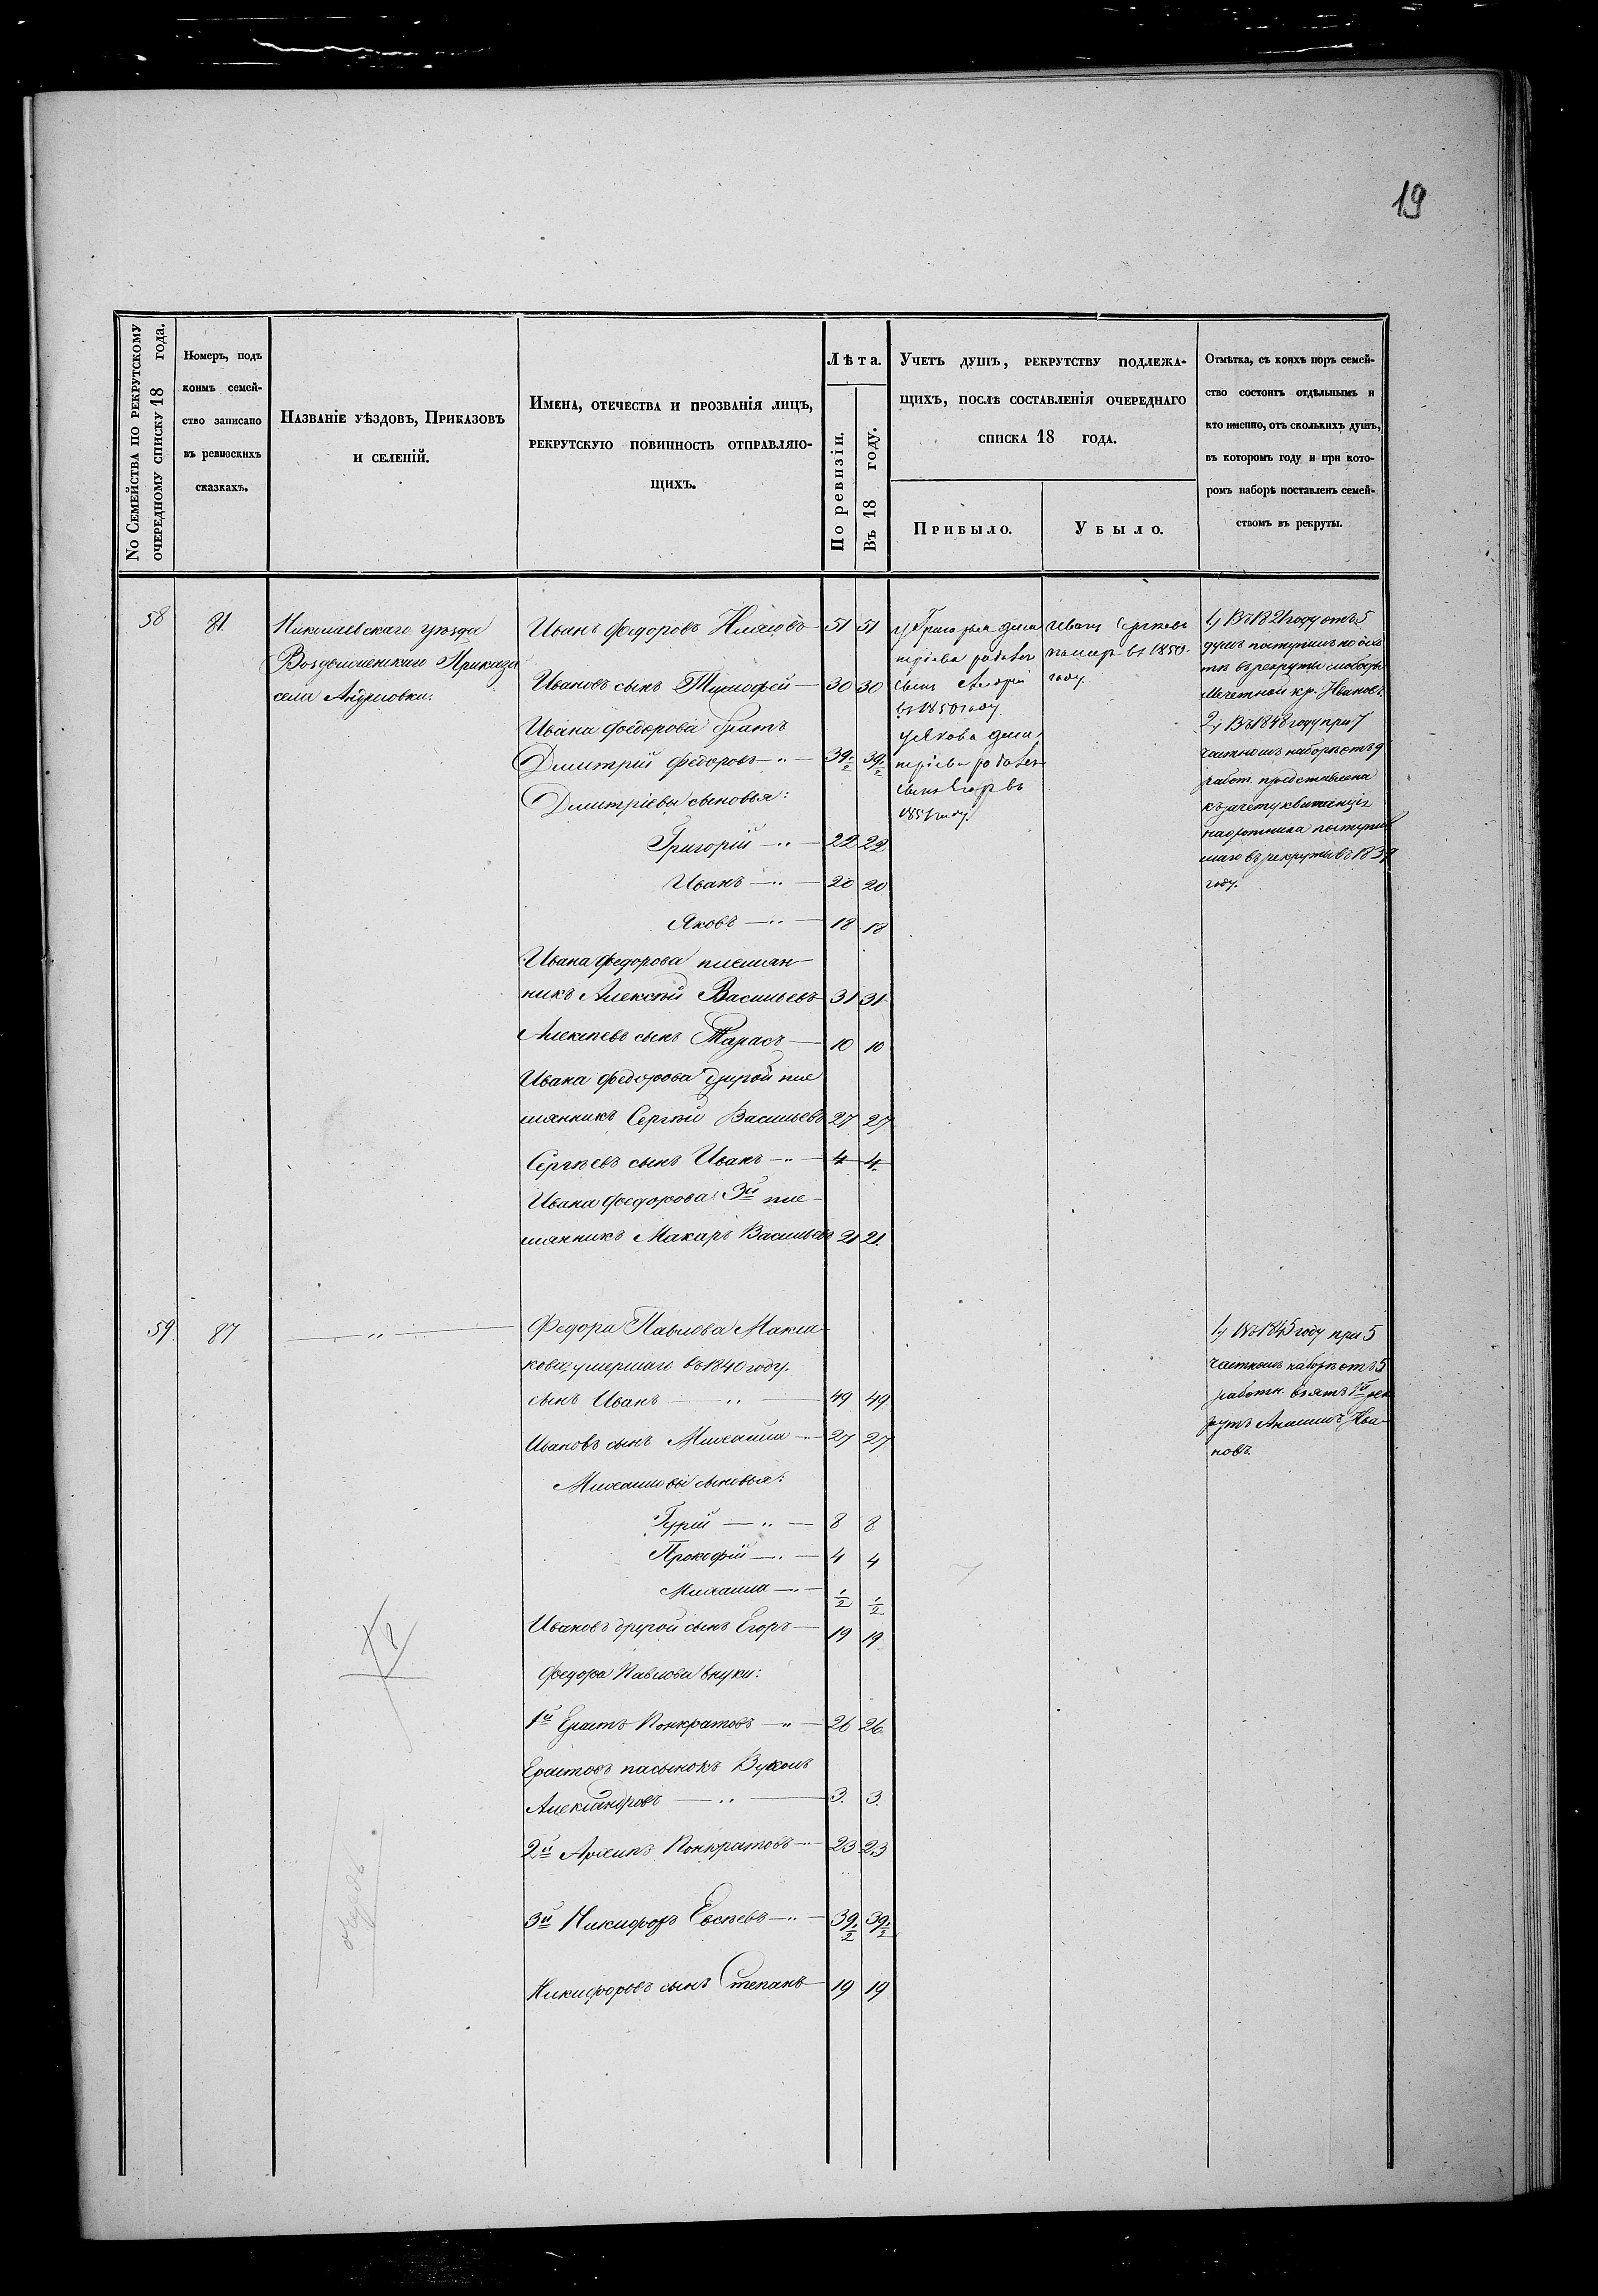 19
№ Семейства по рекрутскому
очередному списку 18 года.
Номеръ, подъ
коимъ семей-
ство записано
въ ревизскихъ
сказкахъ.
Названіе уѣздовъ, Приказовъ
и селеній.
Имена, отечества и прозванія лицъ,
рекрутскую повинность отправляю-
щихъ.
Лѣта.
По ревизіи.
Въ 18 году.
Учетъ душъ, рекрутству подлежа-
щихъ, послѣ составленія очереднаго
списка 18 года.
Прибыло.
Убыло.
Отмѣтка, съ коихъ поръ семей-
ство состоитъ отдѣльнымъ и
кто именно, отъ сколькихъ душъ,
въ которомъ году и при кото-
ромъ наборѣ поставленъ семей-
ствомъ въ рекруты.
58
81.
Николаевскаго уѣзда
Воздвиженскаго Приказа
села Андреевки.
Иванъ Федоровъ 51 51
Ивановъ сынъ Тимофей — 30 30
Ивана Федорова братъ
Дмитрій Федоровъ —„— 39 1/2 39 1/2
Дмитріевы сыновья:
Григорій —„— 22 22
Иванъ —„— 20 20
Яковъ —„— 18 18
Ивана Федорова племян-
никъ Алексѣй Васильевъ 31 31
Алексѣевъ сынъ Тарасъ — 10 10
Ивана Федорова другой пле
мянникъ Сергѣй Васильевъ 27 27
Сергѣевъ сынъ Иванъ —„— 4 4.
Ивана Федорова 3й пле-
мянникъ Макаръ Васильевъ 21 21.
у Григорья Дми
тріева родился
сынъ
въ 1850 году.
у Якова Дми
тріева родился
сынъ Егоръ въ
1851 году.
Иванъ Сергѣевъ
померъ въ 1850
году.
1, Въ 1821 году отъ 5
душъ поступилъ по охо
тѣ въ рекруты слободы
Мечетной кр. Ивановъ
2, Въ 1848 году при 7
частномъ наборѣ отъ 9
работ. представлена
къ зачету квитанція
на ратника поступив
шаго въ рекруты въ 1837
году.
59
87
—„—
Федора Павлова Макла
кова, умершаго въ 1840 году.
сынъ Иванъ —„— 49 49
Ивановъ сынъ Михаила — 27 27
Михаиловы сыновья:
Гурій —„— 8 8
Прокофій —„— 4 4
Михаила —„— 1/2 1/2
Ивановъ другой сынъ Егоръ — 19 19
Федора Павлова внуки:
1й Ерастъ Панкратовъ —„— 26 26
Ерастовъ пасынокъ Вуколъ
Александровъ —„— 3. 3.
2й Архипъ Панкратовъ — 23 23
3й Никифоръ Евсѣевъ —„— 39 1/2 39 1/2
Никифоровъ сынъ Степанъ 19 19
1, Въ 1845 году при 5
частномъ наборѣ отъ 5
работн. взятъ 1й рек
рутъ Ива-
новъ.